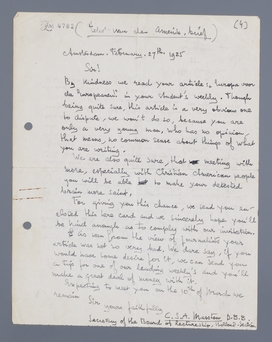 (4)
Amsterdam, February, 27th 1925
Sir!
By kindness we read your article: "Europa voor
de Europeanen" in your Vincent's weekly. Though
being quite sure, this article is a very obvious one
to dispute, we won't do so, because you are
only a very young man, who has no opinion,
that means, no common sense about things of what
you are writing.
We are also quite sure, that meeting with
more, especially with Christian American people
you will be able to make your
brain more sane,
For giving you this chance, we send you
this here card and we sincerely hope you'll
be kind enough as to comply with our invitation
If so from the view of journalism your
article was not so very bad, We dare say, if you
would have some desire for it, we can send you
a for one of our leading weekly's and you'll
make a great deal of money with it.
Expecting to meet you on the 10th of March we
remain
Sir
yours faithfully
Secretary of the Board of lectureship,